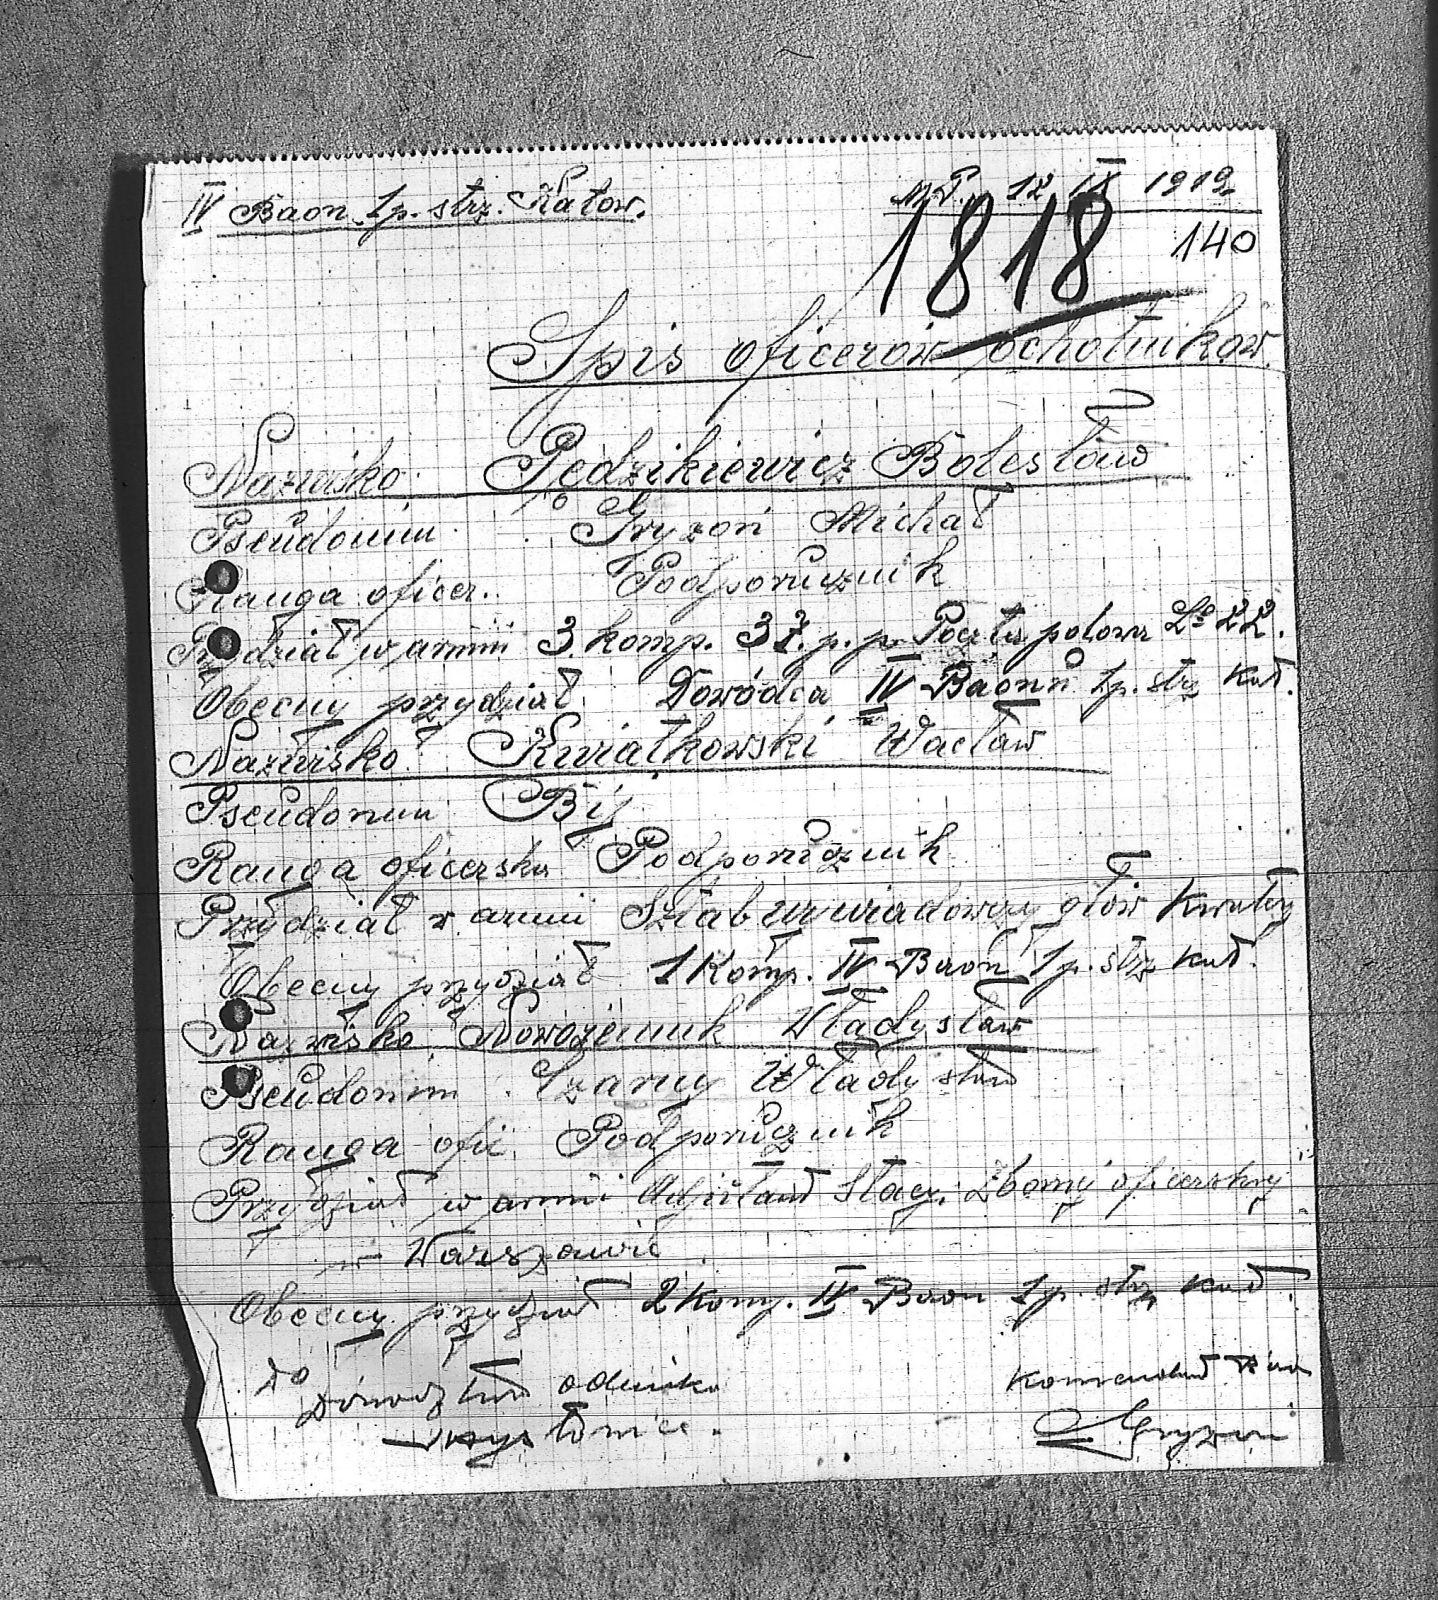 IV Baon 1 p. strz. Katow.
M.P. 12 IX 1919.
1818 140
Spis oficerów ochotników
Nazwisko Pędzikiewicz Bolesław
Pseudonim Gryzoń Michał
Ranga oficer. Podporucznik
Przydział w armii 3. komp. 37. p. p. Poczta polowa 22.
Obecny przydział Dowódca IV Baonu 1 p. strz Kat.
Nazwisko Kwiatkowski Wacław
Pseudonim Bij
Ranga oficerska Podporucznik
Przydział w armii Sztab wywiadowczy głów Kwatery
Obecny przydział 1 Komp. IV Baon 1 p. strz Kat.
Nazwisko Władysław
Pseudonim Czarny Władysław
Ranga ofic. Podporucznik
Przydział w armii Adjutant Stacji Zbornej oficerskiej
w Warszawie
Obecny przydział 2 Komp. IV Baon 1 p. strz Kat.
Do Komendant
Dowództwa odcinka Gryzoń
Mysłowice.